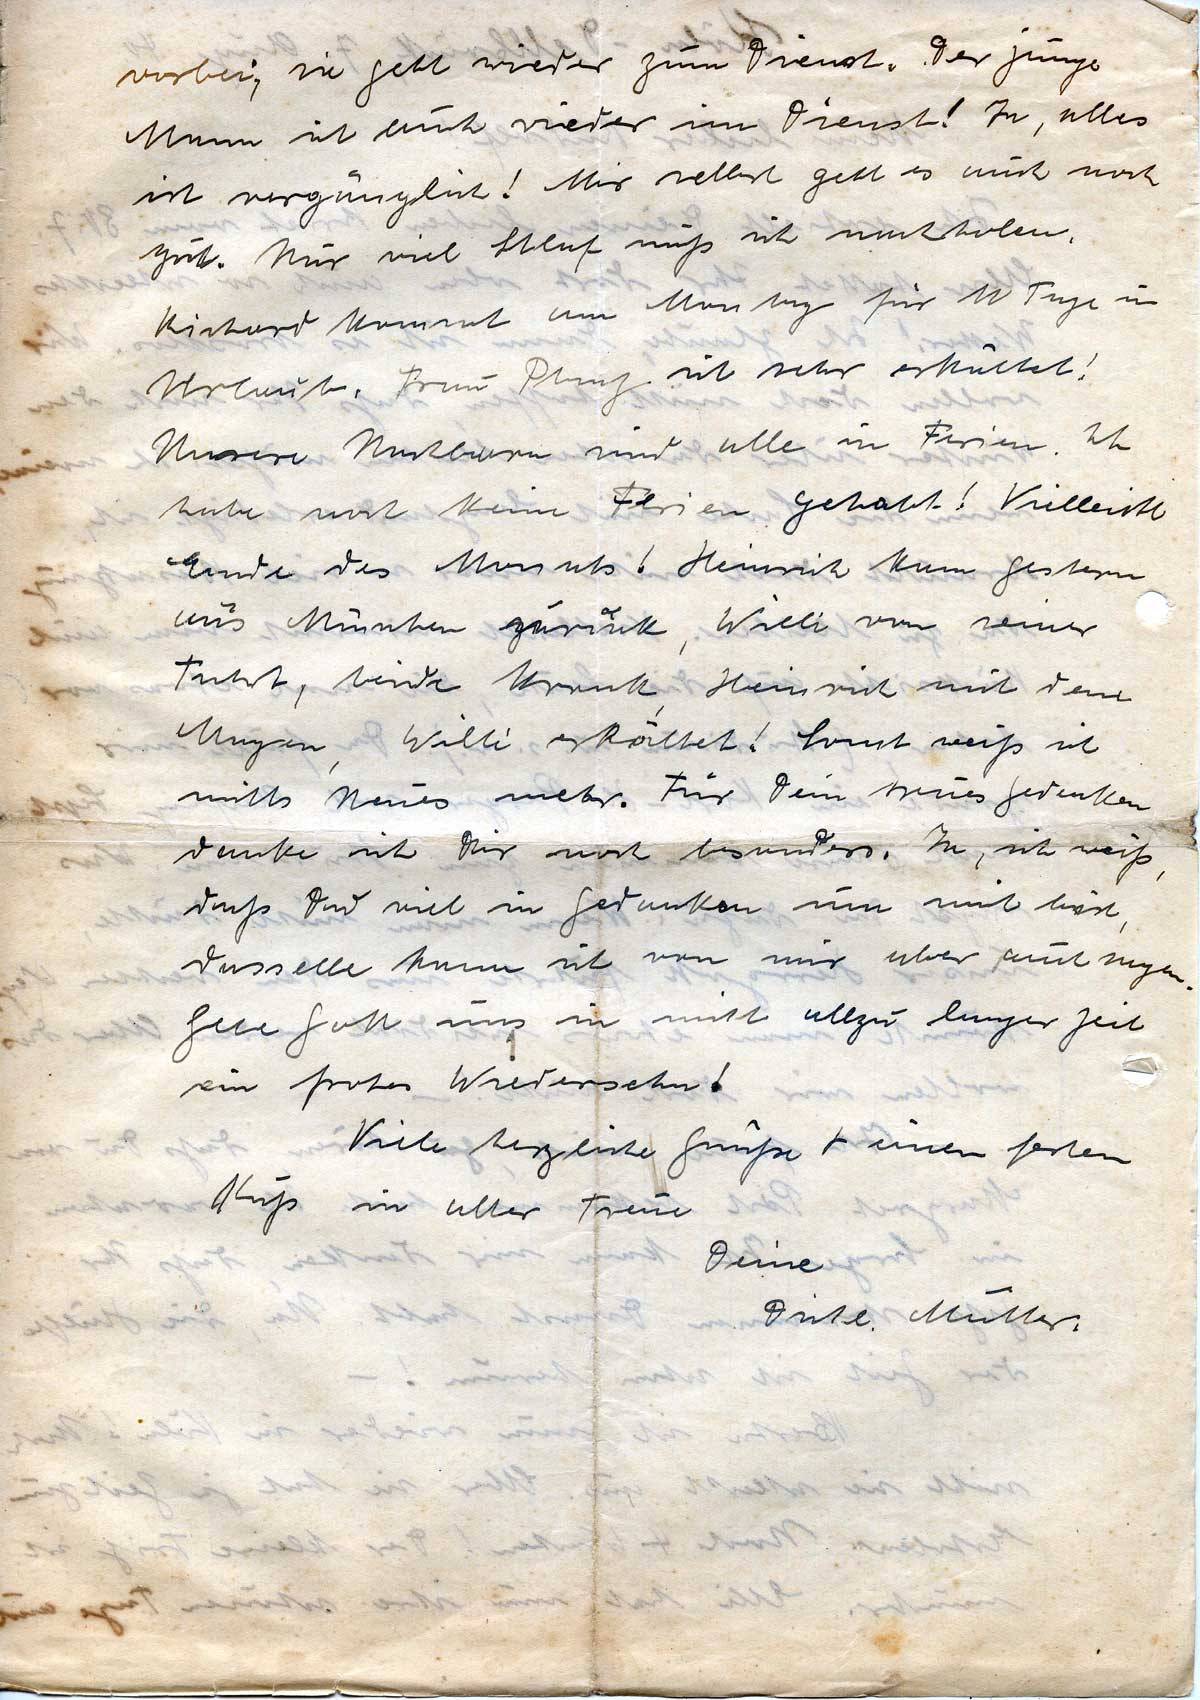 vorbei, sie geht wieder zum Dienst. Der junge
Mann ist auch wieder im Dienst! Ja, alles
ist vergänglich! Mir selbst geht es auch noch
gut. Nur viel Schlaf muß ich nachholen.
Richard kommt am Montag für 14 Tage in
Urlaub. Frau ist sehr erkältet!
Unsere Nachbarn sind alle in Ferien. Ich
habe noch keine Ferien gehabt! Vielleicht
Ende des Monats! Heinrich kam gestern
aus München zurück, Willi von seiner
Fahrt, beide krank, Heinrich mit dem
Magen, Willi erkältet! Sonst weiß ich
nichts Neues mehr. Für Dein treues Gedenken
danke ich Dir noch besonders. Ja, ich weiß,
daß Du viel in Gedanken um mich bist,
dasselbe kann ich von mir aber auch sagen.
Gebe Gott uns in nicht allzu langer Zeit
ein frohes Wiedersehn!
Viele herzliche Grüße + einen festen
Kuß in alter Treue
Deine
Dich l. Mutter.